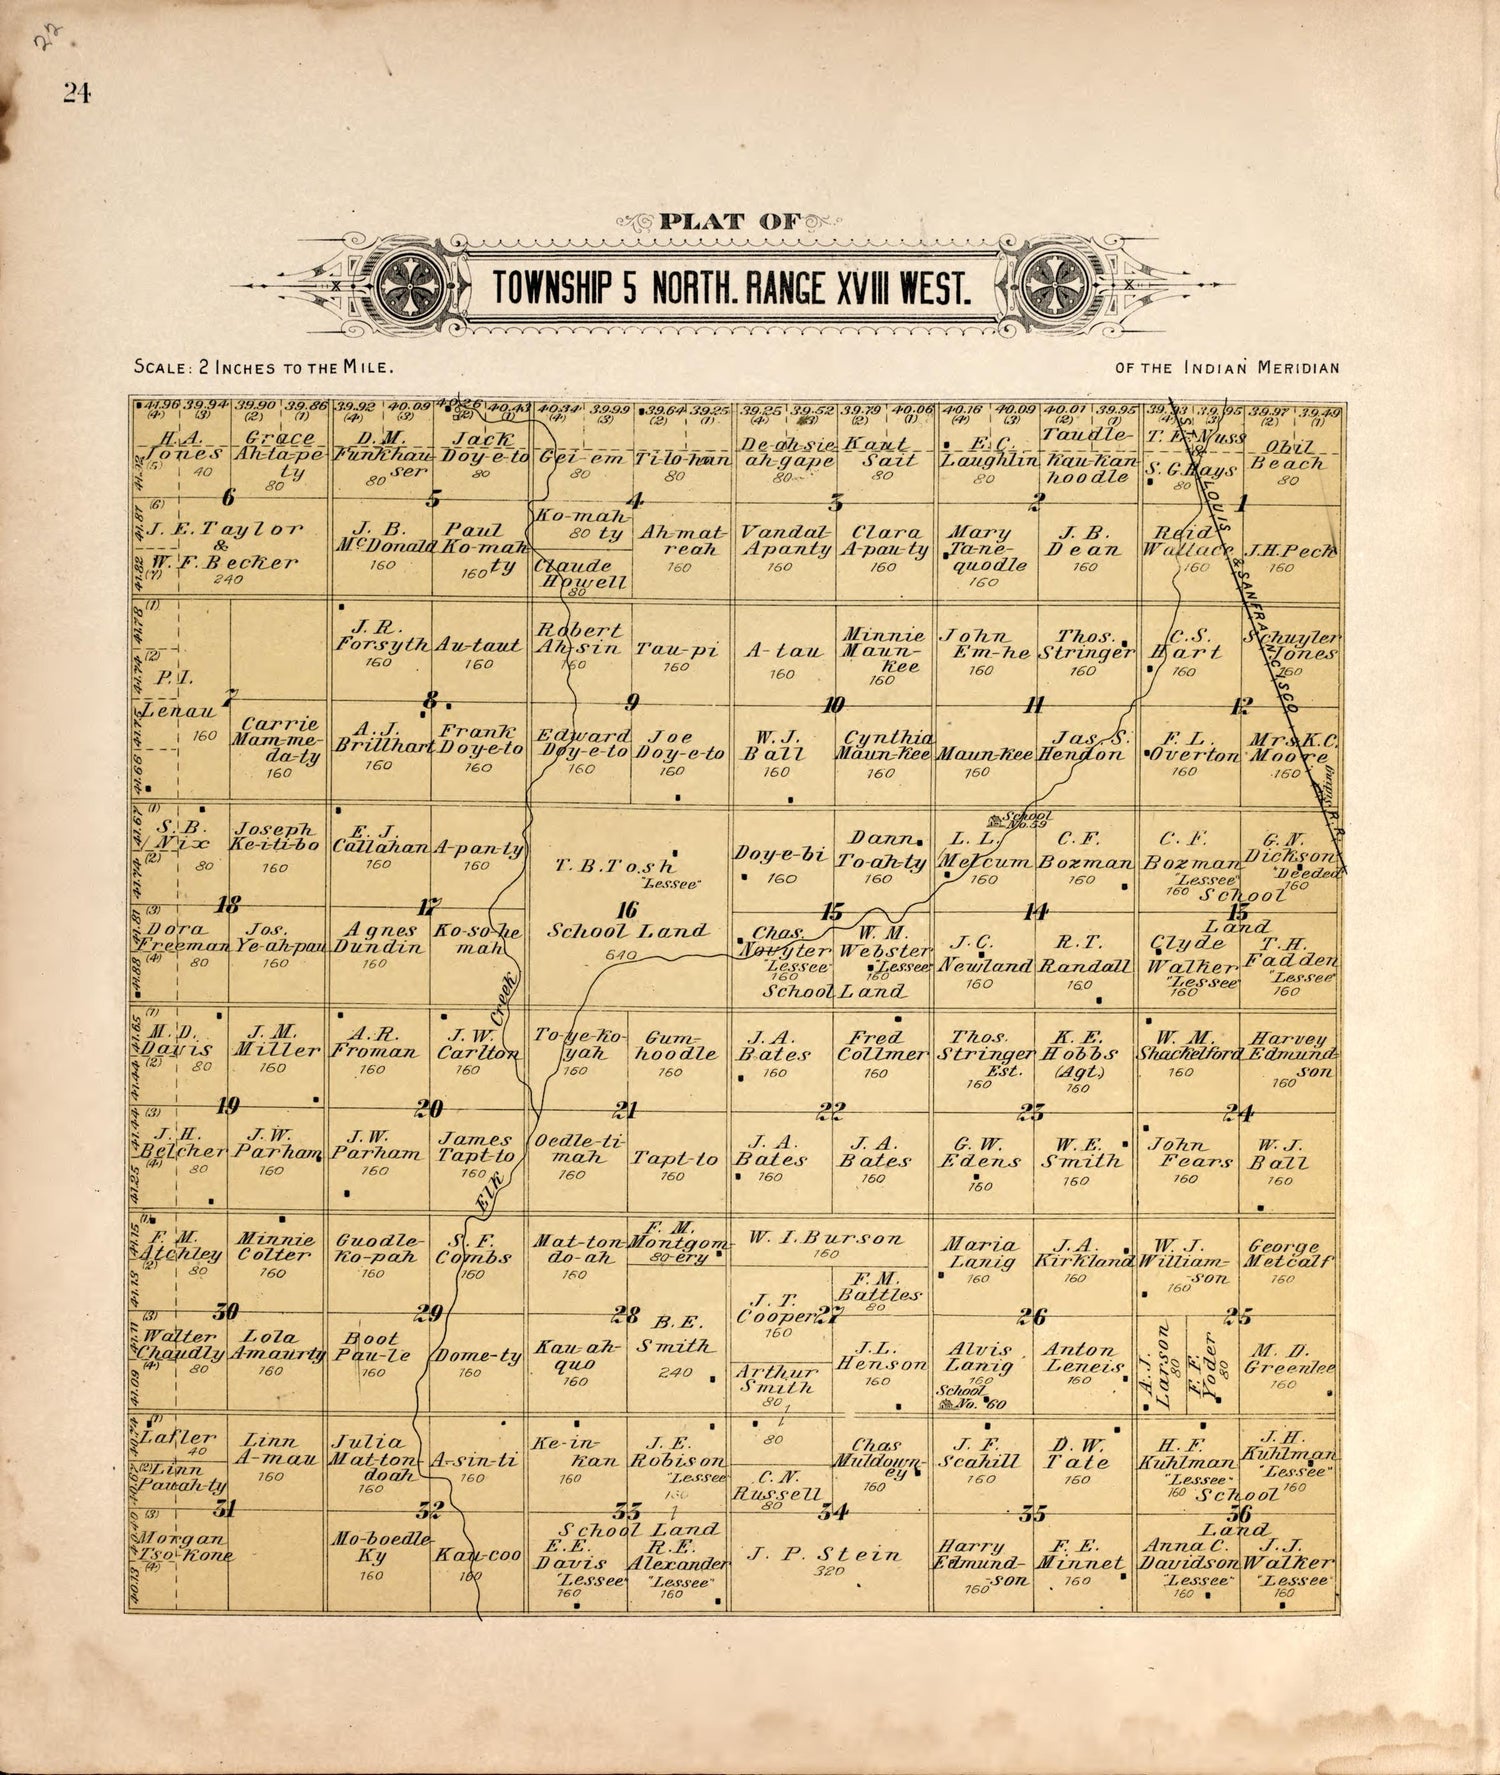 22
24
PLAT OF
TOWNSHIP 5 NORTH. RANGE XVIII WEST.
SCALE: 2 INCHES TO THE MILE.
OF THE INDIAN MERIDIAN
41.96 39.94 39.90 39.86 39.92 40.09 40.26 40.43 40.34 39.99 39.64 39.25 39.25 39.52 39.79 40.06 40.16 40.09 40.01 39.95 39.93 39.95 39.97 39.49
(4) (3) (2) (1) (4) (3) (2) (1) (4) (3) (2) (1) (4) (3) (2) (1) (4) (3) (2) (1) (4) (3) (2) (1)
H.A. Jones 40
Grace Ah-ta-pe-ty 80
D.M. Funkhauser 80
Jack Doy-e-to 80
Gei-em 80
Ti-lo-han 80
De-ah-sie ah-gape 80
Kaut Sait 80
E.C. Laughlin 80
Taudle-kau-kan hoodle
T. E. Nuss
S. G. Hays 80
Obil Beach 80
6 5 4 3 2 1
J. E. Taylor & W. F. Becker 240
J. B. McDonald 160
Paul Ko-mah-ty 160
Ko-mah-ty 80
Claude Howell 80
Ah-mat-reah 160
Vandal Apanty 160
Clara A-pau-ty 160
Mary Ta-ne-quodle 160
J. B. Dean 160
Reid Wallace 160
J.H. Peck 160
ST. LOUIS & SAN FRANCISCO
R.R.
P. I. Lenau 160
J. R. Forsyth 160
Au-taut 160
Robert Ah-sin 160
Tau-pi 160
A-tau 160
Minnie Maun-kee 160
John Em-he 160
Thos. Stringer 160
C. S. Hart 160
Schuyler Jones 160
7 8 9 10 11 12
Carrie Mam-me-da-ty 160
A. J. Brillhart 160
Frank Doy-e-to 160
Edward Doy-e-to 160
Joe Doy-e-to 160
W. J. Ball 160
Cynthia Maun-kee 160
Maun-kee 160
Jas. S. Hendon 160
F. L. Overton 160
Mrs. K.C. Moore 160
S. B. Nix 80
Joseph Ke-i-ti-bo 160
E. J. Callahan 160
A-pan-ty 160
T. B. Tosh "Lessee"
Doy-e-bi 160
Dann. To-ah-ty 160
School No. 59
L. L. Mercum 160
C. F. Bozman 160
C. F. Bozman "Lessee" 160
G. N. Dickson "Deeded" 160
School Land
18 17 16 15 14 13
Dora Freeman 80
Jos. Ye-ah-pau 160
Agnes Dundin 160
Ko-so-he-mah
School Land 640
Chas. Novyter "Lessee" 160
W. M. Webster "Lessee" 160
School Land
J. C. Newland 160
R. T. Randall 160
Clyde Walker "Lessee" 160
T. H. Fadden "Lessee" 160
Elk Creek
M. D. Davis 80
J. M. Miller 160
A. R. Froman 160
J. W. Carlton 160
To-ye-ko-yah 160
Gum-hoodle 160
J. A. Bates 160
Fred Collmer 160
Thos. Stringer Est. 160
K. E. Hobbs (Agt.) 160
W. M. Shackelford 160
Harvey Edmundson 160
19 20 21 22 23 24
J. H. Belcher 80
J. W. Parham 160
J. W. Parham 160
James Tapt-to 160
Oedle-ti-mah 160
Tapt-to 160
J. A. Bates 160
J. A. Bates 160
G. W. Edens 160
W. E. Smith 160
John Fears 160
W. J. Ball 160
F. M. Atchley 80
Minnie Colter 160
Guodle-ko-pah 160
S. F. Combs 160
Mat-ton-do-ah 160
F. M. Montgomery 80
W. I. Burson 160
J. T. Cooper 160
F. M. Battles 80
Maria Lanig 160
J. A. Kirkland 160
W. J. Williamson 160
George Metcalf 160
30 29 28 27 26 25
Walter Chaudly 80
Lola Amaurty 160
Boot Pau-le 160
Dome-ty 160
Kau-ah-quo 160
B. E. Smith 240
Arthur Smith 80
J. L. Henson 160
Alvis Lanig 160
School No. 60
Anton Leneis 160
A. J. Larson 80
F. F. Yoder 80
M. D. Greenlee 160
Lafler 40
Linn Pauah-ty
Linn A-mau 160
Julia Mat-ton-doah 160
A-sin-ti 160
Ke-in-kan 160
J. E. Robison "Lessee" 160
80
C. N. Russell 80
Chas Muldowney 160
J. F. Scahill 160
D. W. Tate 160
H. F. Kuhlman "Lessee" 160
J. H. Kuhlman "Lessee" 160
School Land
31 32 33 34 35 36
Morgan Tso-kone
Mo-boedle-Ky 160
Kau-coo 160
School Land
E. E. Davis "Lessee" 160
R. E. Alexander "Lessee" 160
J. P. Stein 320
Harry Edmundson 160
F. E. Minnet 160
Anna C. Davidson "Lessee" 160
J. J. Walker "Lessee" 160